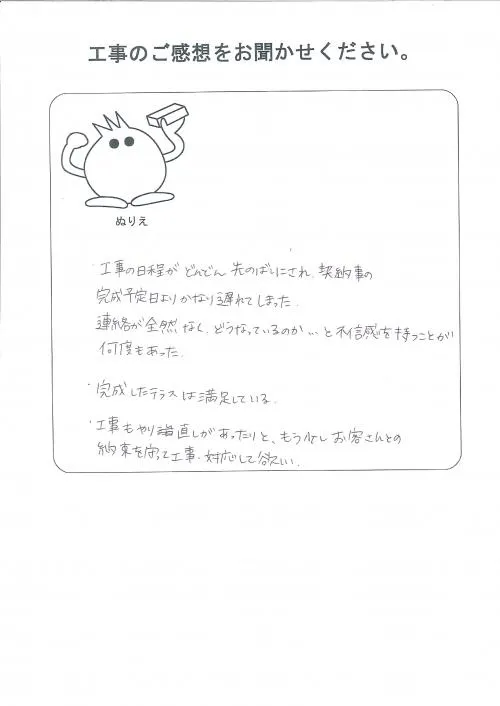 工事のご感想をお聞かせください。
ぬりえ
・工事の日程がどんどん先のばしにされ、契約時の
完成予定日よりかなり遅れてしまった。
連絡が全然なし、どうなっているのか…と不信感を持つことが
何度もあった。
・完成したテラスは満足している。
・工事もやり直しがあったりと、もう少しお客さんとの
約束を守って工事・対応して欲しい。